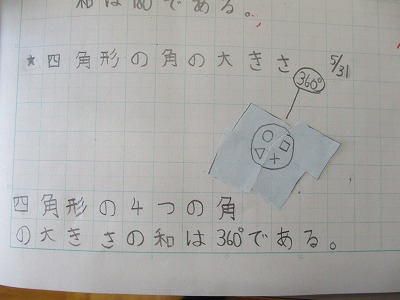 和は180°である。
★四角形の角の大きさ 5/31
360°
四角形の4つの角
の大きさの和は360°である。